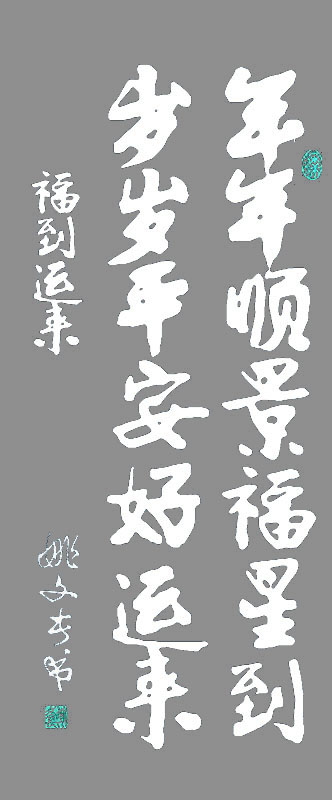 年年顺景福星到
岁岁平安好运来
福到运来
姚文 书